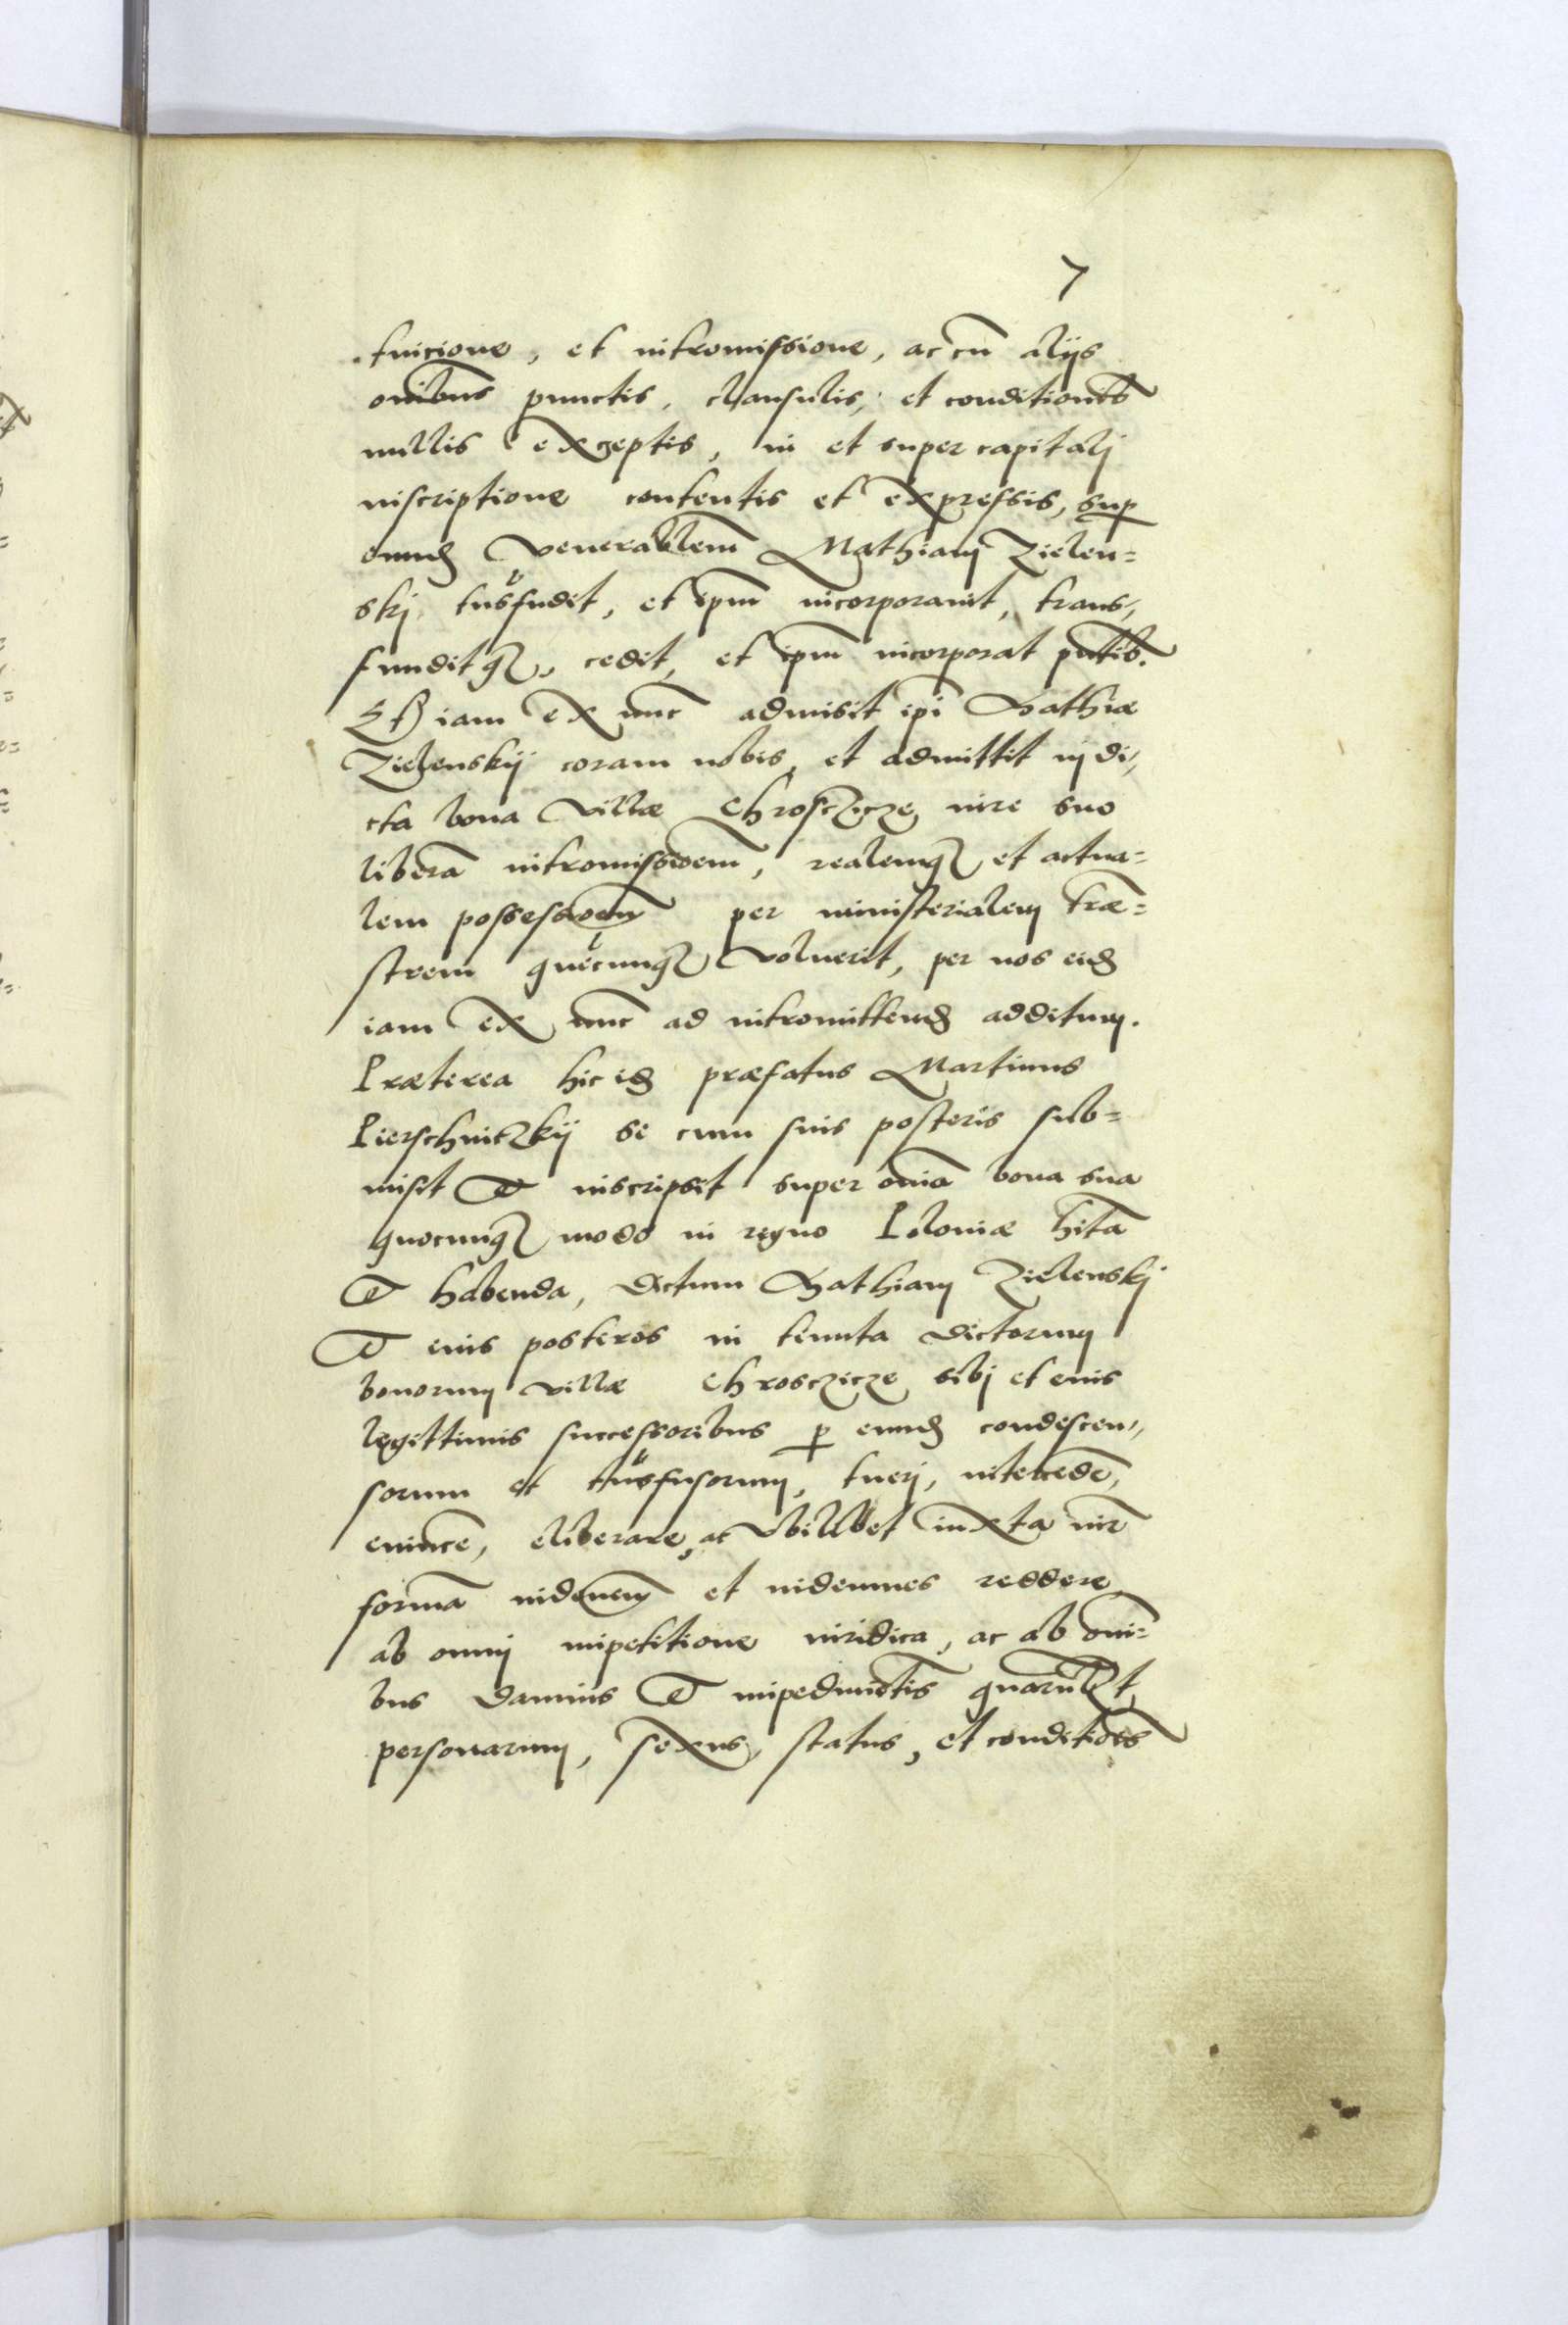 7
tuicione, et intromissione, ac cū alijs
oībus punctis, clausulis, et conditionib͂s
nullis exceptis, in et super capitalj
inscriptione contentis et expressis, sup̱
eund̄ venerablem̄ Mathiam Zielen=
skj tn̄sfudit, et ip̄m incorporauit, trans,
funditq̄, cedit, et ip̄m incorporat pn̄tib.
Et iam ex nūc admisit ip̄i Mathiæ
Zielenskij coram nobis, et admittit in di,
cta bona villæ Chrosczicze iure suo
liberā intromissioēm, realemq̄ et actua=
lem possessioēm per ministerialem træ=
strem quēcunq̄ voluerit, per nos eid̄
iam ex nūc ad intromittend̄ additum.
Præterea hic id̄ præfatus Martinus
Pierschnitzkij se cum suis posteris sub=
misit et inscripsit super oīa bona sua
quocunq̄ modo in regno Poloniæ hītā
et habenda, dictum Mathiam Zielenskj
et eius posteros in tenuta dictorum
bonorum villæ Chrosczicze sibj et eius
legittimis successoribus p̱ eund̄ condescen,
sorum et tn̄sfusorum, tuerj, intercedē,
euincē, eliberare, ac vbilibet iuxta iur̄
formā indēnem et indemnes reddere
ab omnj impetitione iuridica, ac ab om̄i=
bus damnis et impedimētis quarūlꝫt
personarum, sexus, status, et conditiōēs